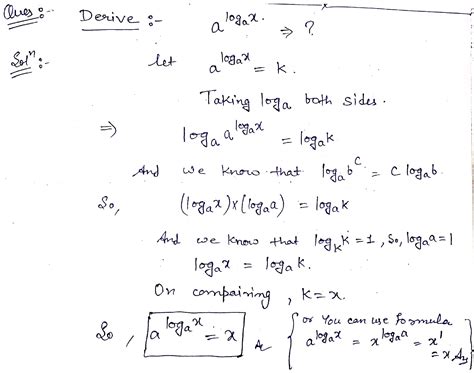 Ques :- Derive :- a^{log_a x} ⇒ ?
Solⁿ :- let a^{log_a x} = k.
Taking log_a both sides.
⇒ log_a a^{log_a x} = log_a k
And we know that log_a b^c = c log_a b.
So, (log_a x) x (log_a a) = log_a k
And we know that log_k k = 1, So, log_a a = 1
log_a x = log_a k.
On compairing, k = x.
So, a^{log_a x} = x
{ or You can use formula
a^{log_a x} = x^{log_a a} = x^1
= x